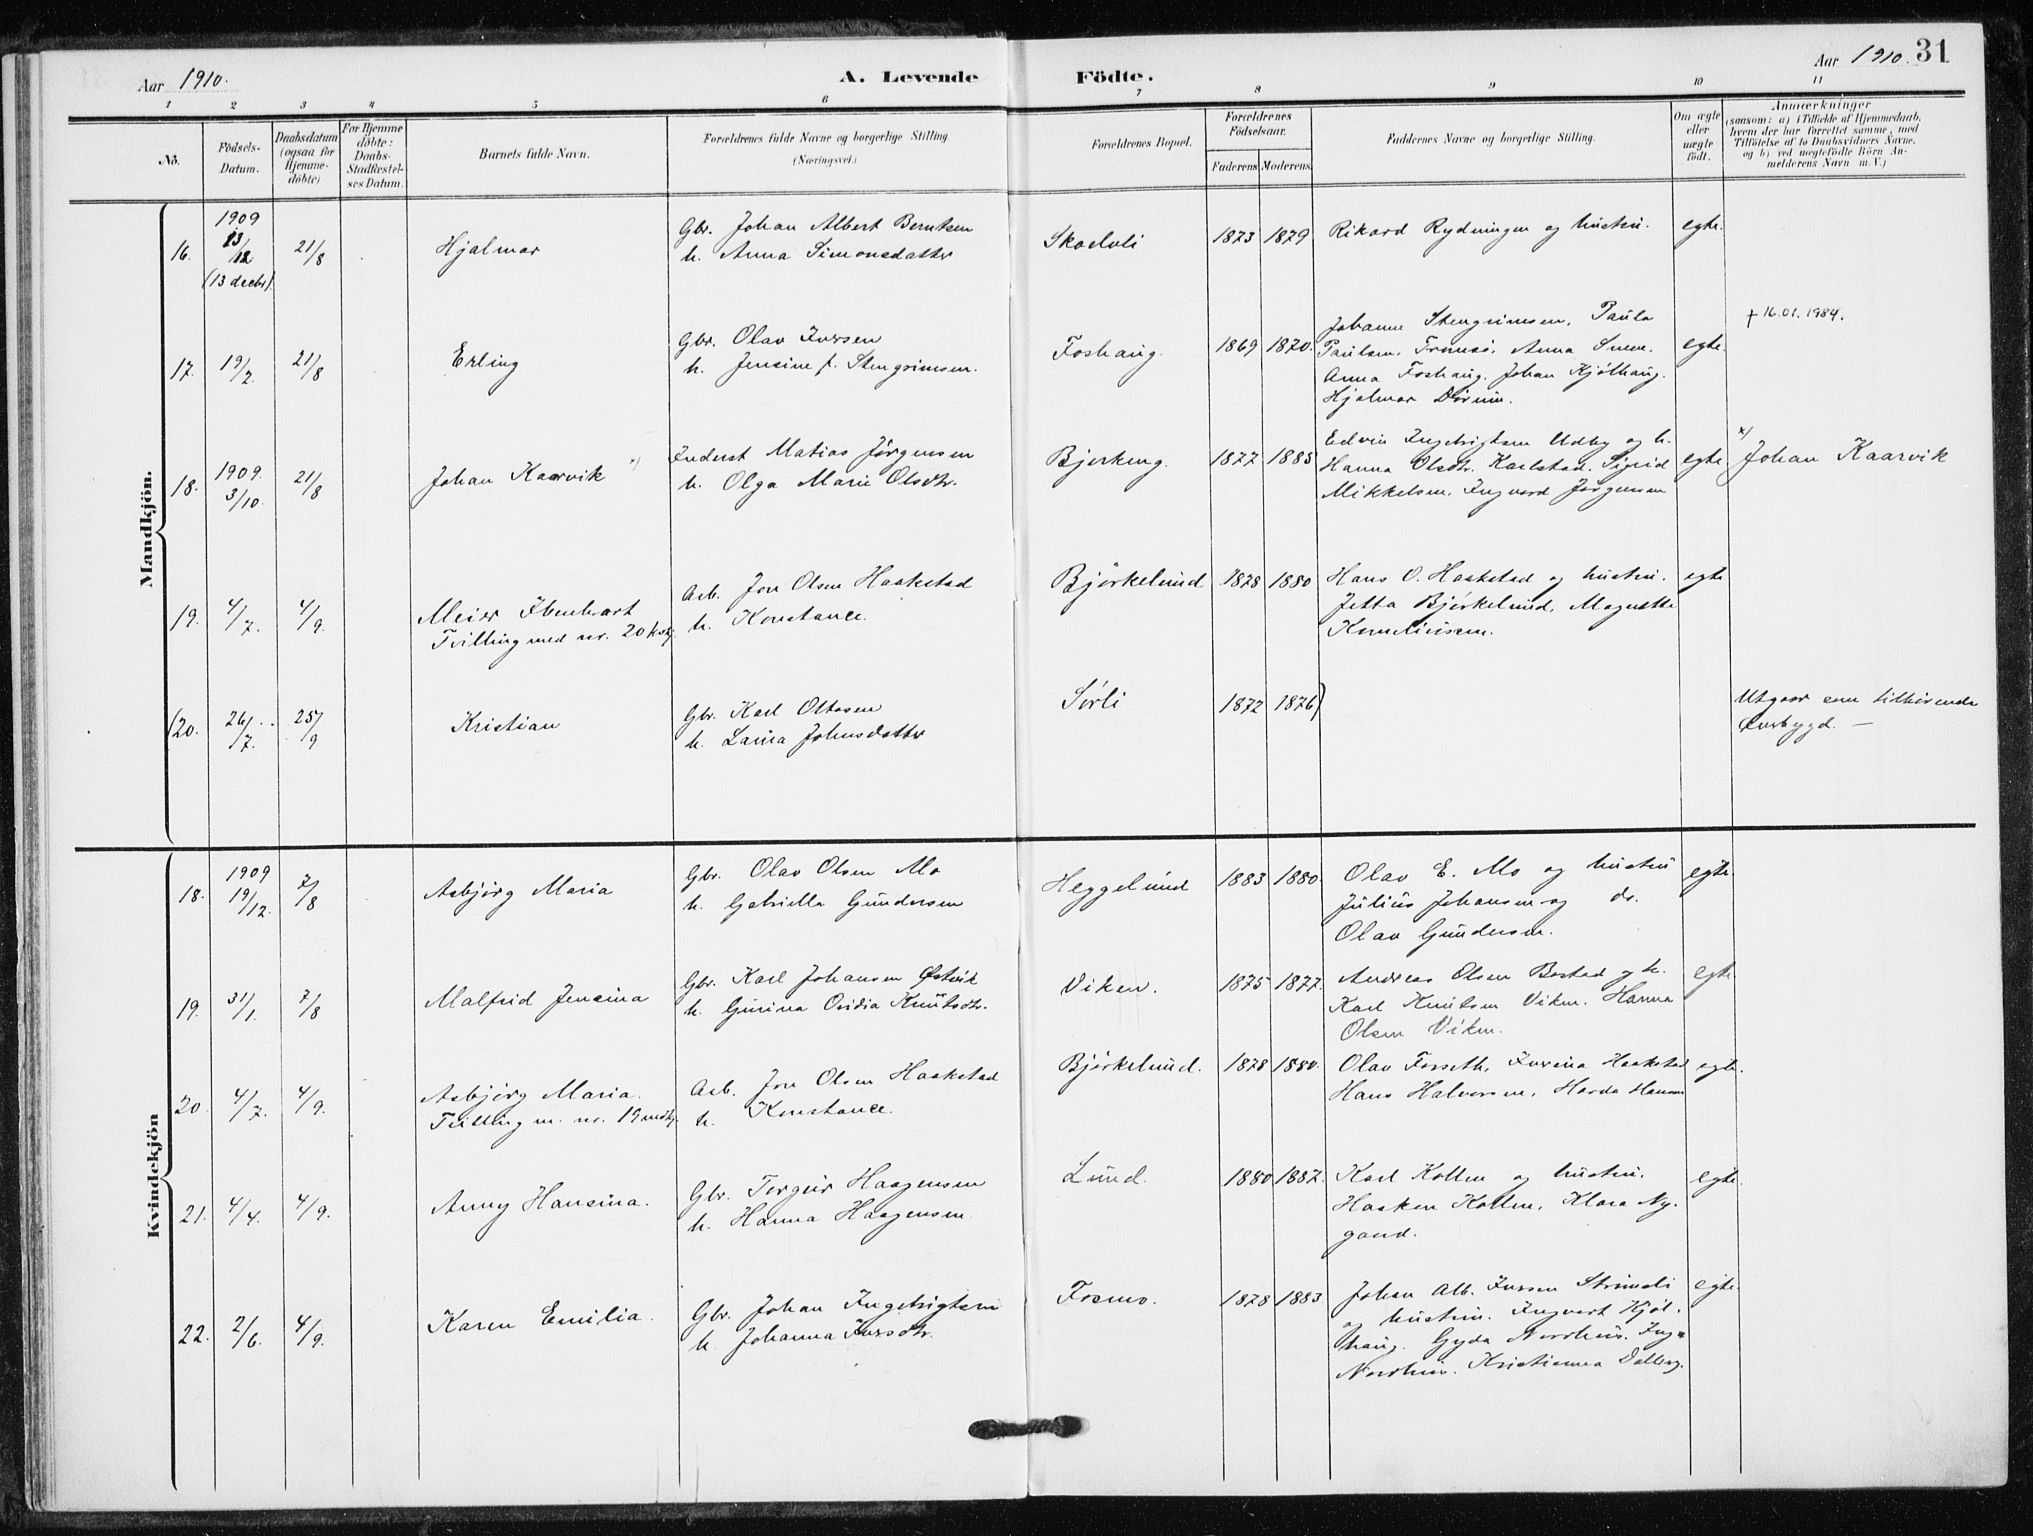 Aar 1910. A. Levende Födte. Aar 1910. 31
1 2 3 4 5 6 7 8 9 10 11
No. Födsels-Datum. Daabsdatum (ogsaa for Hjemme-döbte) For Hjemme döbte: Daabs-Stadfæstel-ses Datum. Barnets fulde Navn. Forældrenes fulde Navne og borgerlige Stilling. (Næringsvei.) Forældrenes Bopæl. Forældrenes Födselsaar. Faderens Moderens. Faddernes Navne og borgerlige Stilling. Om ægte eller uægte födt. Anmærkninger (saasom: a) i Tilfælde af Hjemmedaab, hvem der har forrettet samme, med Tilföielse af to Daabsvidners Navne, og b) ved uægtefödte Börn An-melderens Navn m. V.)
Mandkjön.
16. 1909 13/12. (13 decbr). 21/8 Hjalmar Gbr. Johan Albert Berntsen
h. Anna Simonsdatter
Skodvli 1873 1879 Rikard Rydningen og hustru. egte.
17. 19/2. 21/8 Erling Gbr. Olav Iversen
h. Jensine f. Stengrimsen.
Foshaug. 1869 1870. Johanne Stengrimsen, Paula
Paulsen, Tromsö, Anna Snem,
Anna Foshaug, Johan Kjölhaug.
Hjalmar Dörum.
egte. † 16.01.1984.
18. 1909. 3/10. 21/8 Johan Kaarvik x) Inderst Matias Jørgensen
h. Olga Marie Olsdtr.
Bjerkeng. 1877 1885 Edvin Ingebrigtsen Udby og h.
Hanna Olsdtr. Karlstad. Sigrid
Mikkelsen, Ingvard Jørgensen
egte x) Johan Kaarvik
19. 4/7. 4/9. Meier Ibenhart
Tvilling med nr. 20 kvkj.
Arb. Jon Olsen Haakstad
h. Konstance.
Björkelund 1878 1880 Hans O. Haakstad og hustru.
Jetta Björkelund, Magnetta
Korneliussen.
egte
(20. 26/7. 25/9 Kristian Gbr. Karl Ottosen
h. Larsa Johnsdatter
Sörli 1872 1876) Utgaar som tilhörende
Övrbygd. —
Kvindekjön
18. 1909 19/12. 7/8 Asbjörg Maria Gbr. Olav Olsen Mo
h. Gabriella Gundersen
Heggelund 1883 1880. Olav E. Mo og hustru
Julius Johansen og do.
Olav Gundersen.
egte.
19. 31/1. 7/8 Malfrid Jensina Gbr. Karl Johansen Østvik
h. Gurina Ovidia Knutsdtr.
Viken. 1875 1877. Andreas Olsen Bostad og h.
Karl Knutsen Viken. Hanna
Olsen Viken.
egte.
20. 4/7. 4/9. Asbjörg Maria.
Tvilling m. nr. 19 mdkj.
Arb. Jon Olsen Haakstad
h. Konstance.
Björkelund. 1878 1880. Olav Forseth, Iversina Haakstad
Hans Halvorsen, Harda Hansen
egte.
21. 4/4. 4/9. Anny Hansina. Gbr. Torgeir Haagensen
h. Hanna Haagensen.
Lund. 1880 1887. Karl Kollen og hustru.
Haaken Kollen, Klara Ny-
gaard.
egte.
22. 2/6. 4/9. Karen Emilia. Gbr. Johan Ingebrigtsen
h. Johanna Iversdtr.
Fosmo. 1878 1883 Johan Alb. Iversen Strimeli
og hustru. Ingvart Kjöl-
haug. Gyda Nordhus. Inga
Nordhus. Kristianna Dalberg.
egte.